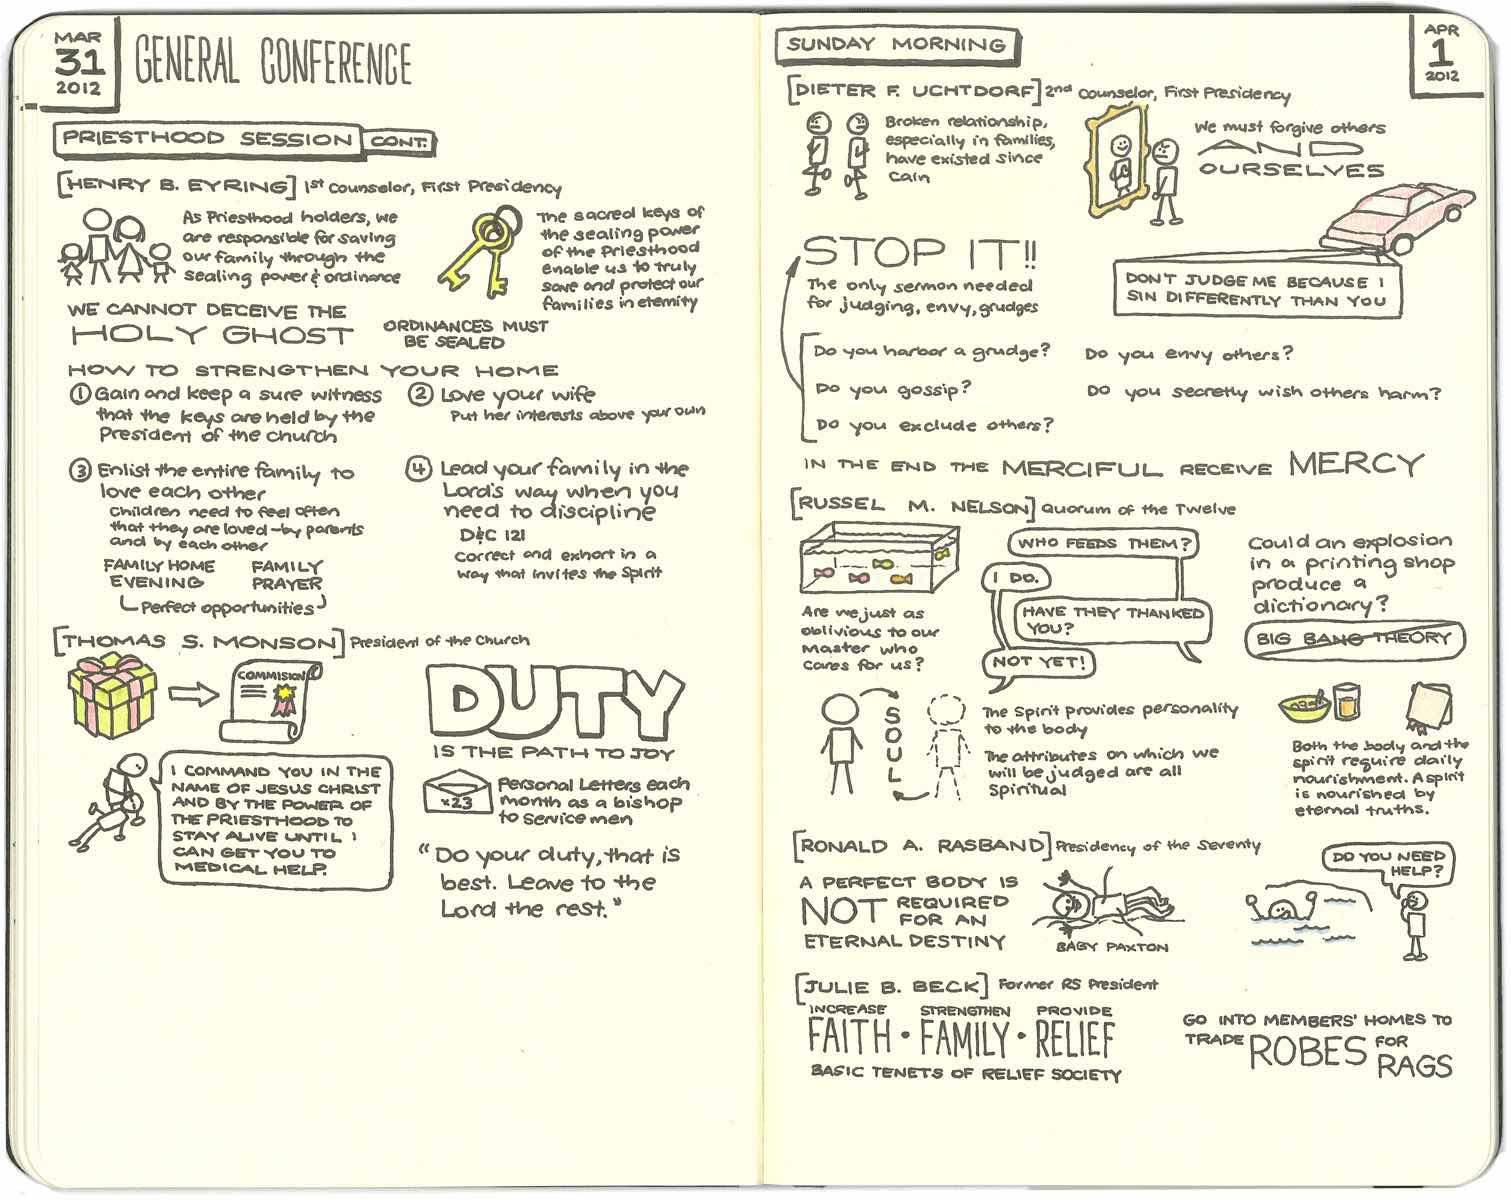 MAR
31
2012
GENERAL CONFERENCE
PRIESTHOOD SESSION CONT.
[HENRY B. EYRING] 1st Counselor, First Presidency
As Priesthood holders, we
are responsible for saving
our family through the
sealing power & ordinance
The sacred keys of
the sealing power
of the Priesthood
enable us to truly
save and protect our
families in eternity
WE CANNOT DECEIVE THE
HOLY GHOST
ORDINANCES MUST
BE SEALED
HOW TO STRENGTHEN YOUR HOME
① Gain and keep a sure witness
that the keys are held by the
President of the church
② Love your wife
Put her interests above your own
③ Enlist the entire family to
love each other
Children need to feel often
that they are loved - by parents
and by each other
FAMILY HOME
EVENING
FAMILY
PRAYER
Perfect opportunities
④ Lead your family in the
Lord's way when you
need to discipline
D&C 121
Correct and exhort in a
way that invites the Spirit
[THOMAS S. MONSON] President of the Church
COMMISION
DUTY
IS THE PATH TO JOY
I COMMAND YOU IN THE
NAME OF JESUS CHRIST
AND BY THE POWER OF
THE PRIESTHOOD TO
STAY ALIVE UNTIL I
CAN GET YOU TO
MEDICAL HELP.
x23
Personal Letters each
month as a bishop
to service men
"Do your duty, that is
best. Leave to the
Lord the rest."
SUNDAY MORNING
APR
1
2012
[DIETER F. UCHTDORF] 2nd Counselor, First Presidency
Broken relationship,
especially in families,
have existed since
Cain
We must forgive others
AND
OURSELVES
STOP IT!!
The only sermon needed
for judging, envy, grudges
DON'T JUDGE ME BECAUSE I
SIN DIFFERENTLY THAN YOU
Do you harbor a grudge?
Do you envy others?
Do you gossip?
Do you secretly wish others harm?
Do you exclude others?
IN THE END THE MERCIFUL RECEIVE MERCY
[RUSSEL M. NELSON] Quorum of the Twelve
Are we just as
oblivious to our
Master who
cares for us?
WHO FEEDS THEM?
I DO.
HAVE THEY THANKED
YOU?
NOT YET!
Could an explosion
in a printing shop
produce a
dictionary?
BIG BANG THEORY
SOUL
The Spirit provides personality
to the body
The attributes on which we
will be judged are all
Spiritual
Both the body and the
spirit require daily
nourishment. A spirit
is nourished by
eternal truths.
[RONALD A. RASBAND] Presidency of the Seventy
A PERFECT BODY IS
NOT REQUIRED
FOR AN
ETERNAL DESTINY
BABY PAXTON
DO YOU NEED
HELP?
[JULIE B. BECK] Former RS President
INCREASE STRENGTHEN PROVIDE
FAITH • FAMILY • RELIEF
BASIC TENETS OF RELIEF SOCIETY
GO INTO MEMBERS' HOMES TO
TRADE ROBES FOR
RAGS